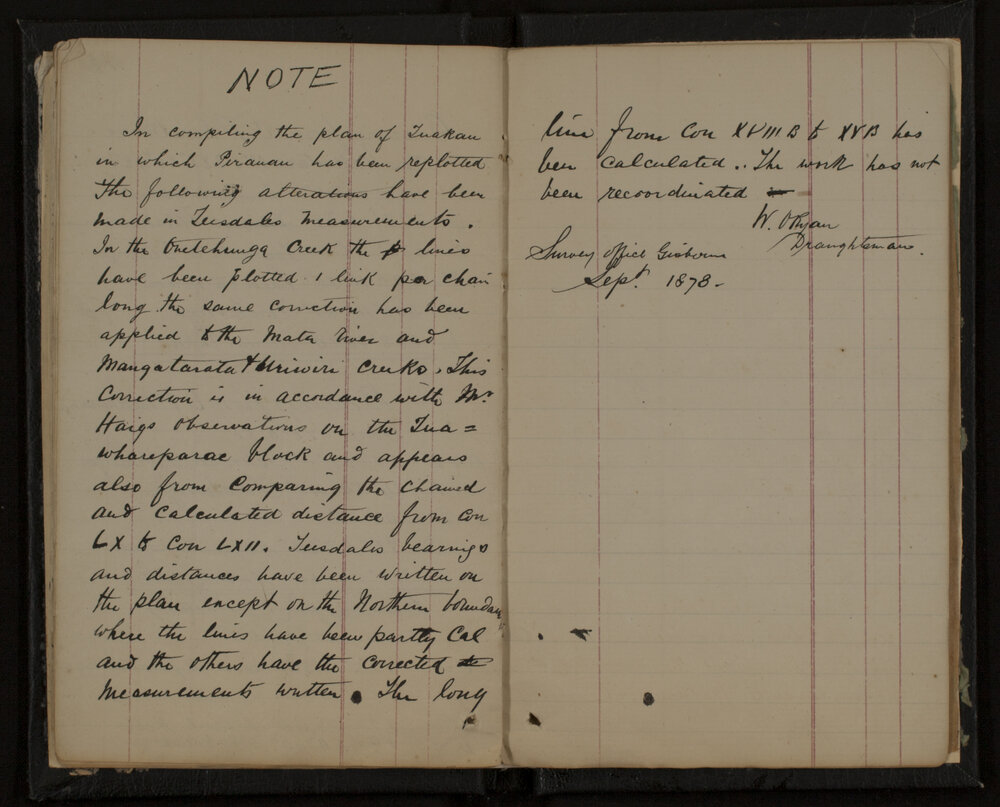 NOTE
In compiling the plan of Tuakau
in which Perauau has been replotted
The following alterations have been
made in Teesdales measurements.
In the Onetehunga Creek the lines
have been plotted 1 link per chain
long the same correction has been
applied to the Mata river and
Mangatarata & Uriwiri creeks. This
correction is in accordance with Mr
Haigs observations on the Tua=
whareparae block and appears
also from comparing the chained
and calculated distance from con
LX to con LXII. Teesdales bearings
and distances have been written on
the plan except on the Northern boundary
where the lines have been partly Cal
and the others have the corrected
measurements written. The long
line from Con XVIII B to XVB has
been calculated.. The work has not
been recoordinated
W. O'Ryan
Draughtsman.
Survey office Gisborne
Sept. 1878.